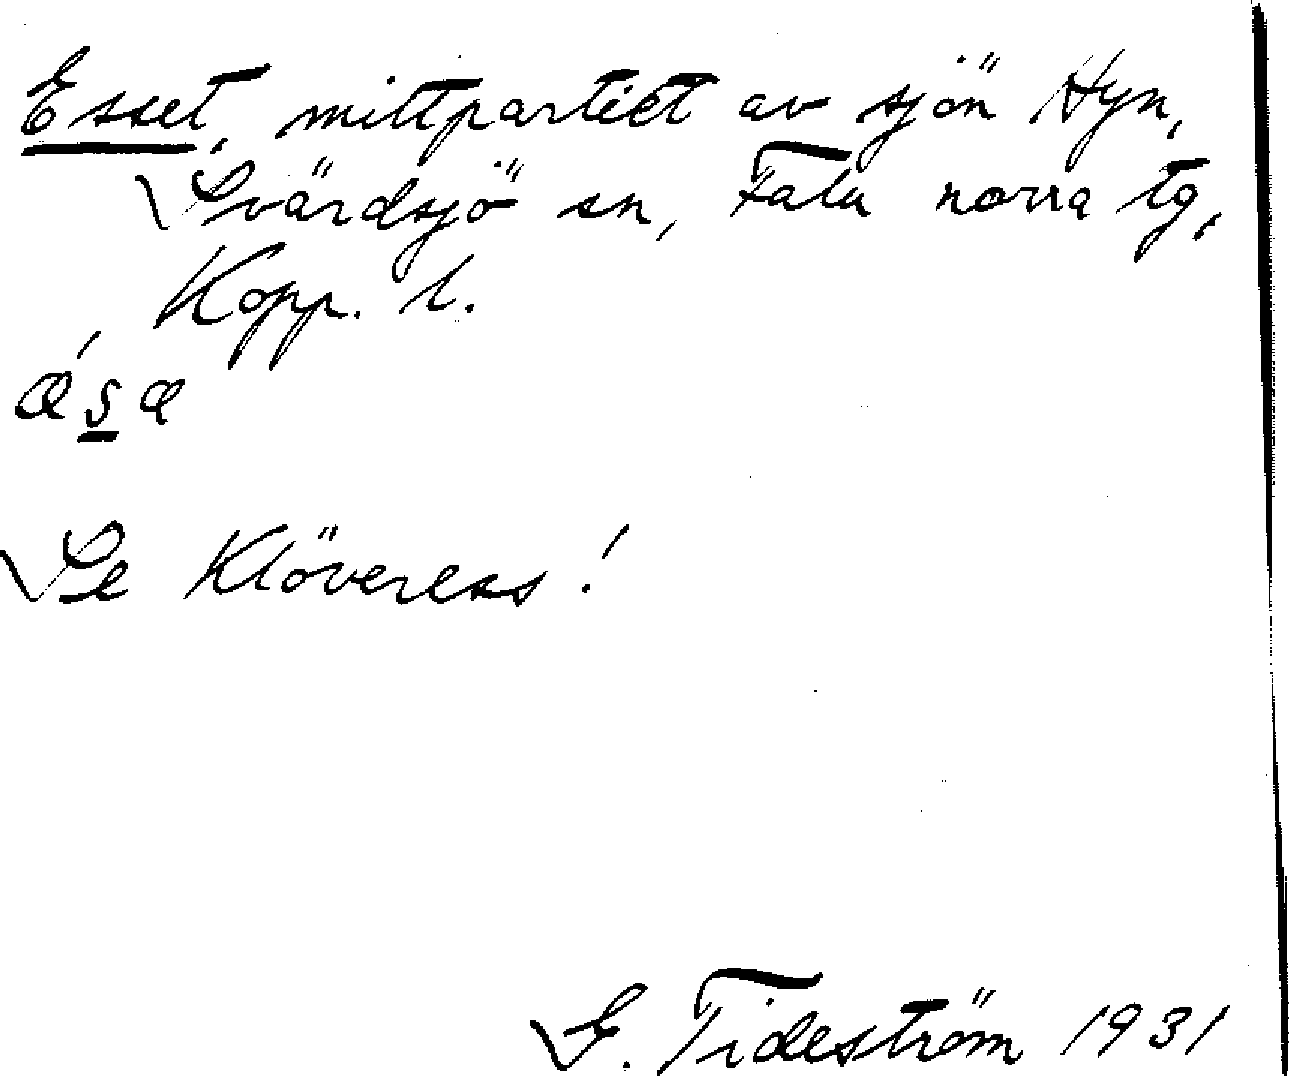 Esset, mittpartiet av sjön Hyn,
Svärdsjö sn, Falu norra tg,
Kopp. l.
æ´sæ
Se Klöveress!
G. Tideström 1931